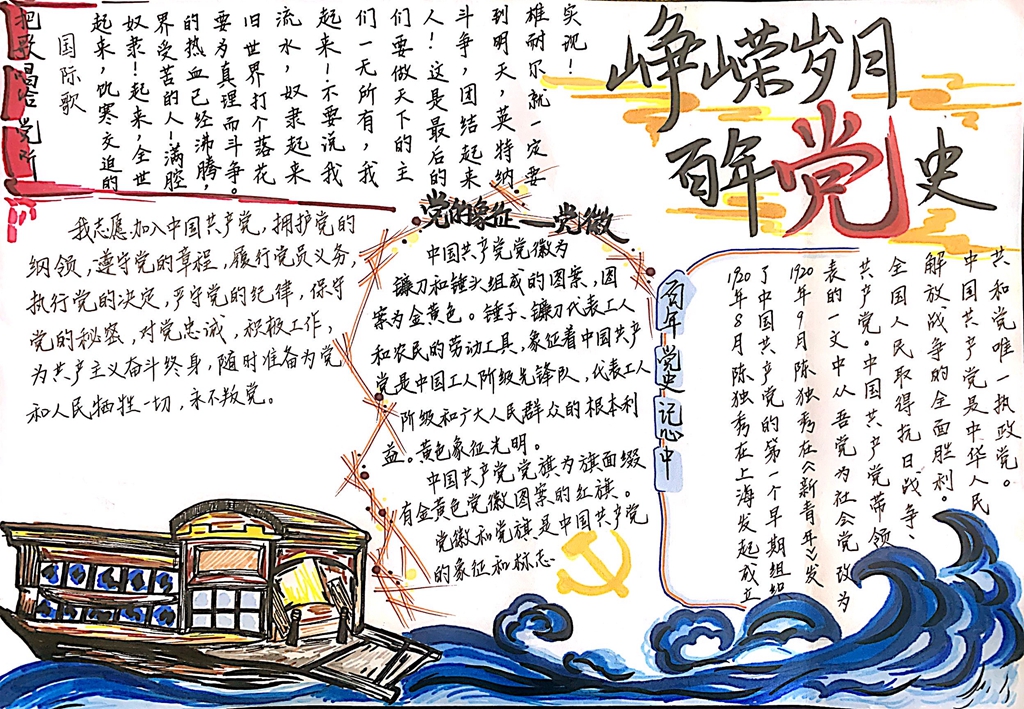 峥嵘岁月
百年党史
把歌唱给党听
国际歌
起来,饥寒交迫的
奴隶!起来,全世
界受苦的人!满腔
的热血已经沸腾,
要为真理而斗争。
旧世界打个落花
流水,奴隶起来
起来!不要说我
们一无所有,我
们要做天下的主
人!这是最后的
斗争,团结起来
到明天,英特纳
雄耐尔就一定要
实现!
我志愿加入中国共产党,拥护党的
纲领,遵守党的章程,履行党员义务,
执行党的决定,严守党的纪律,保守
党的秘密,对党忠诚,积极工作,
为共产主义奋斗终身,随时准备为党
和人民牺牲一切,永不叛党。
党的象征—党徽
中国共产党党徽为
镰刀和锤头组成的图案,图
案为金黄色。锤子、镰刀代表工人
和农民的劳动工具,象征着中国共产
党是中国工人阶级先锋队,代表工人
阶级和广大人民群众的根本利
益。黄色象征光明。
中国共产党党旗为旗面缀
有金黄色党徽图案的红旗。
党徽和党旗是中国共产党
的象征和标志.
百年党史记心中
1920年8月陈独秀在上海发起成立
了中国共产党的第一个早期组织
1920年9月陈独秀在《新青年》发
表的一文中从吾党为社会党改为
共产党。中国共产党带领
全国人民取得抗日战争、
解放战争的全面胜利。
中国共产党是中华人民
共和党唯一执政党。